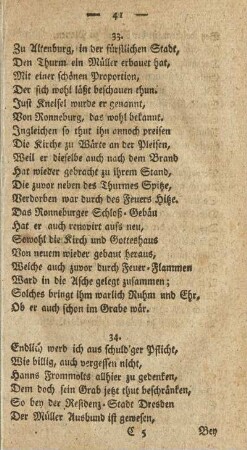 — 41 —
33.
Zu Altenburg, in der fürstlichen Stadt,
Den Thurm ein Müller erbauet hat,
Mit einer schönen Proportion,
Der sich wohl läßt beschauen thun.
Just Kneisel wurde er genannt,
Von Ronneburg, das wohl bekannt.
Ingleichen so thut ihn annoch preisen
Die Kirche zu Wörte an der Pleisen,
Weil er dieselbe auch nach dem Brand
Hat wieder gebracht zu ihrem Stand,
Die zuvor neben des Thurmes Spitze,
Verdorben war durch des Feuers Hitze.
Das Ronneburger Schloß-Gebäu
Hat er auch renovirt aufs neu,
Sowohl die Kirch und Gotteshaus
Von neuem wieder gebaut heraus,
Welche auch zuvor durch Feuer-Flammen
Ward in die Asche gelegt zusammen;
Solches bringt ihm warlich Ruhm und Ehr,
Ob er auch schon im Grabe wär.
34.
Endlich werd ich aus schuld'ger Pflicht,
Wie billig, auch vergessen nicht,
Hanns Frommolts allhier zu gedenken,
Dem doch sein Grab jetzt thut beschränken,
So bey der Residenz-Stadt Dresden
Der Müller Ausbund ist gewesen,
C 5 Bey